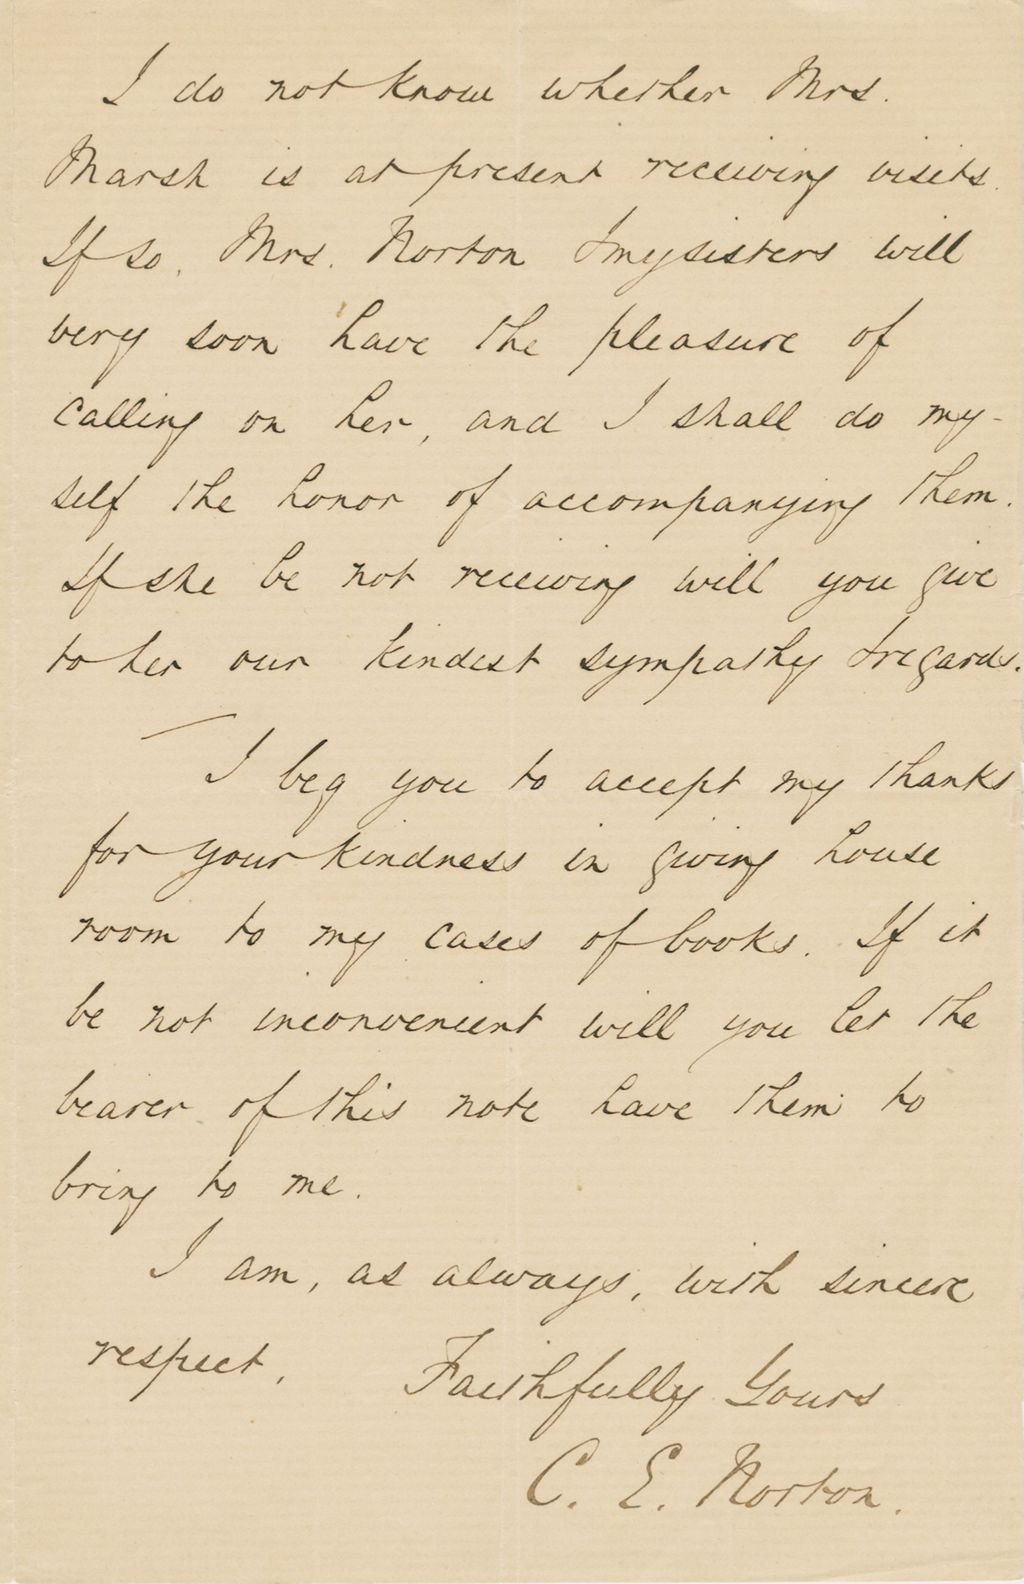 I do not know whether Mrs.
Marsh is at present receiving visits.
If so, Mrs. Norton & my sisters will
very soon have the pleasure of
calling on her, and I shall do my-
self the honor of accompanying them.
If she be not receiving will you give
to her our kindest sympathy & regards.
— I beg you to accept my thanks
for your kindness in giving house
room to my cases of books. If it
be not inconvenient will you let the
bearer of this note have them to
bring to me.
I am, as always, with sincere
respect,
Faithfully Yours
C. E. Norton.